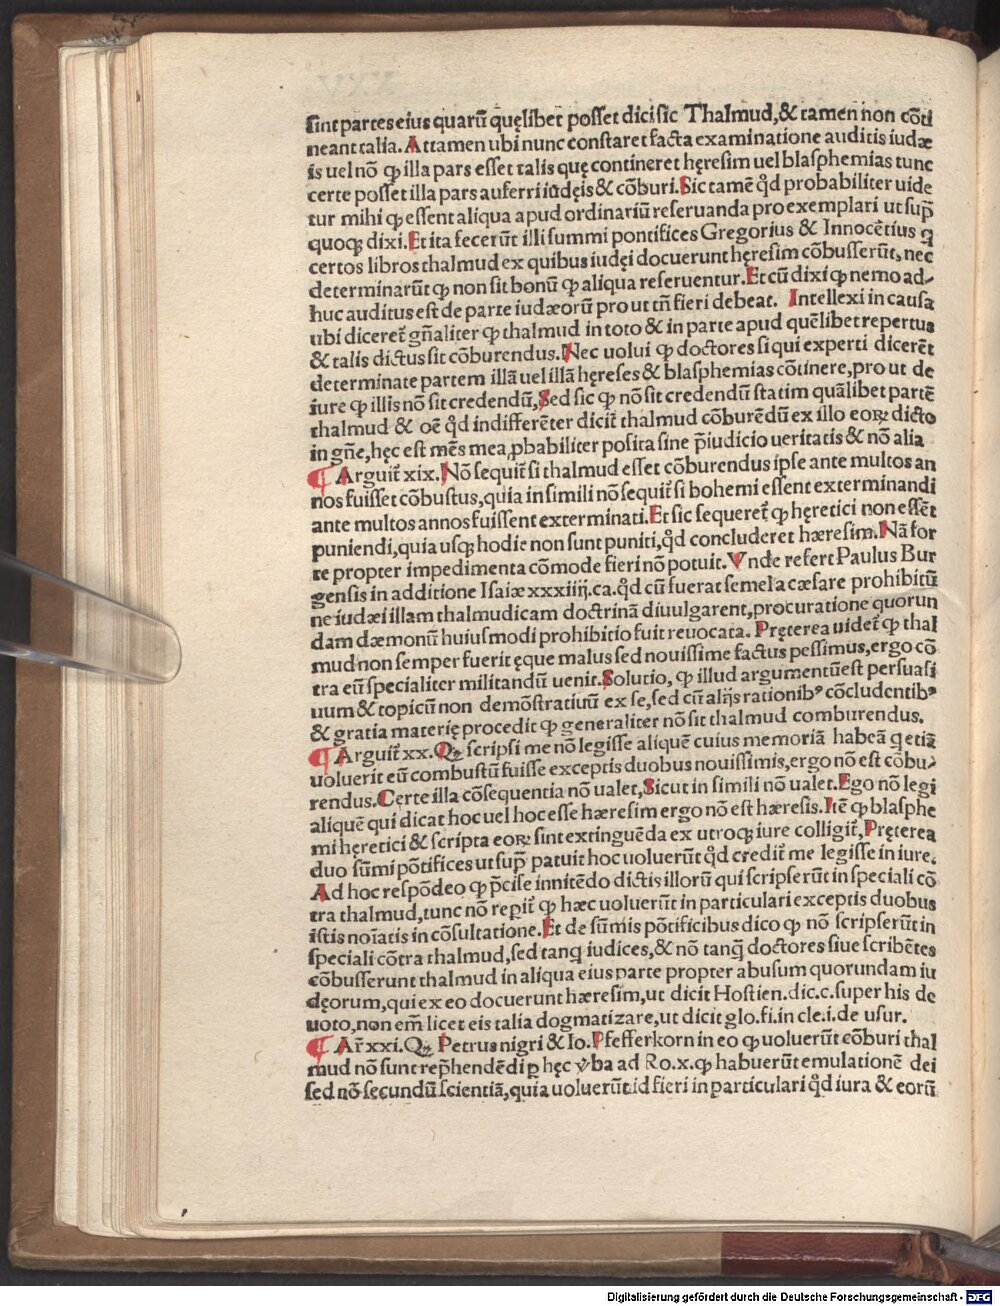 sint partes eius quarũ quęlibet posset dici sic Thalmud,& tamen non cõti
neant talia. Attamen ubi nunc constaret facta examinatione auditis iudæ
is uel nõ ꝙ illa pars esset talis quę contineret hęresim uel blasphemias tunc
certe posset illa pars auferri iudęis & cõburi. Sic tamẽ qđ probabiliter uide
tur mihi ꝙ essent aliqua apud ordinariũ reseruanda pro exemplari ut sup̃
quoqꝫ dixi. Et ita fecerũt illi summi pontifices Gregorius & Innocẽtius q
certos libros thalmud ex quibus iudęi docuerunt hęresim cõbusserũt, nec
determinarũt ꝙ non sit bonũ ꝙ aliqua reseruentur. Et cũ dixi ꝙ nemo ad-
huc auditus est de parte iudæorũ pro ut tñ fieri debeat. Intellexi in causa
ubi diceret̃ gñaliter ꝙ thalmud in toto & in parte apud quẽlibet repertus
& talis dictus sit cõburendus. Nec uolui ꝙ doctores si qui experti dicerẽt
determinate partem illã uel illã hęreses & blasphemias cõtinere, pro ut de
iure ꝙ illis nõ sit credendũ, Sed sic ꝙ nõ sit credendũ statim quãlibet partẽ
thalmud & oẽ qđ indifferẽter dicit̃ thalmud cõburẽdũ ex illo eoꝝ dicto
in gñe, hęc est mẽs mea ꝓbabiliter posita sine p̃iudicio ueritatis & nõ alia
¶ Arguit̃ xix. Nõ sequit̃ si thalmud esset cõburendus ipse ante multos an
nos fuisset cõbustus, quia in simili nõ sequit̃ si bohemi essent exterminandi
ante multos annos fuissent exterminati. Et sic sequeret̃ ꝙ hęretici non essẽt
puniendi, quia usqꝫ hodie non sunt puniti, qđ concluderet hæresim. Nã for
te propter impedimenta cõmode fieri nõ potuit. Vnde refert Paulus Bur
gensis in additione Isaiæ xxxiiij. ca. qđ cũ fuerat semel a cæsare prohibitũ
ne iudæi illam thalmudicam doctrinã diuulgarent, procuratione quorun
dam dæmonũ huiusmodi prohibitio fuit reuocata. Pręterea uidet̃ ꝙ thal
mud non semper fuerit ęque malus sed nouissime factus pessimus, ergo cõ
tra eũ specialiter militandũ uenit. Solutio, ꝙ illud argumentũ est persuasi
uum & topicũ non demõstratiuũ ex se, sed cũ alijs rationibꝰ cõcludentibꝰ
& gratia materię procedit ꝙ generaliter nõ sit thalmud comburendus.
¶ Arguit̃ xx. Qꝫ scripsi me nõ legisse aliquẽ cuius memoriã habeã q etiã
uoluerit eũ combustũ fuisse exceptis duobus nouissimis, ergo nõ est cõbu-
rendus. Certe illa cõsequentia nõ ualet, Sicut in simili nõ ualet. Ego nõ legi
aliquẽ qui dicat hoc uel hoc esse hæresim ergo nõ est hæresis. Itẽ ꝙ blasphe
mi hęretici & scripta eoꝝ sint extinguẽda ex utroqꝫ iure colligit̃, Pręterea
duo sũmi põtifices ut sup̃ patuit hoc uoluerũt qđ credit̃ me legisse in iure.
Ad hoc respõdeo ꝙ p̃cise innitẽdo dictis illorũ qui scripserũt in speciali cõ
tra thalmud, tunc nõ repit̃ ꝙ hæc uoluerũt in particulari exceptis duobus
istis noĩatis in cõsultatione. Et de sũmis põtificibus dico ꝙ nõ scripserũt in
speciali cõtra thalmud, sed tanq̃ iudices, & nõ tanq̃ doctores siue scribẽtes
cõbusserunt thalmud in aliqua eius parte propter abusum quorundam iu
dęorum, qui ex eo docuerunt hæresim, ut dicit Hostien. dic. c. super his de
uoto, non em̃ licet eis talia dogmatizare, ut dicit glo. fi. in cle. i. de usur.
¶ Ar̃ xxi. Qꝫ Petrus nigri & Io. Pfefferkorn in eo ꝙ uoluerũt cõburi thal
mud nõ sunt rep̃hendẽdi ꝑ hęc v̾ba ad Ro. x. ꝙ habuerũt emulationẽ dei
sed nõ secundũ scientiã, quia uoluerũt id fieri in particulari qđ iura & eorũ
Digitalisierung gefördert durch die Deutsche Forschungsgemeinschaft - DFG